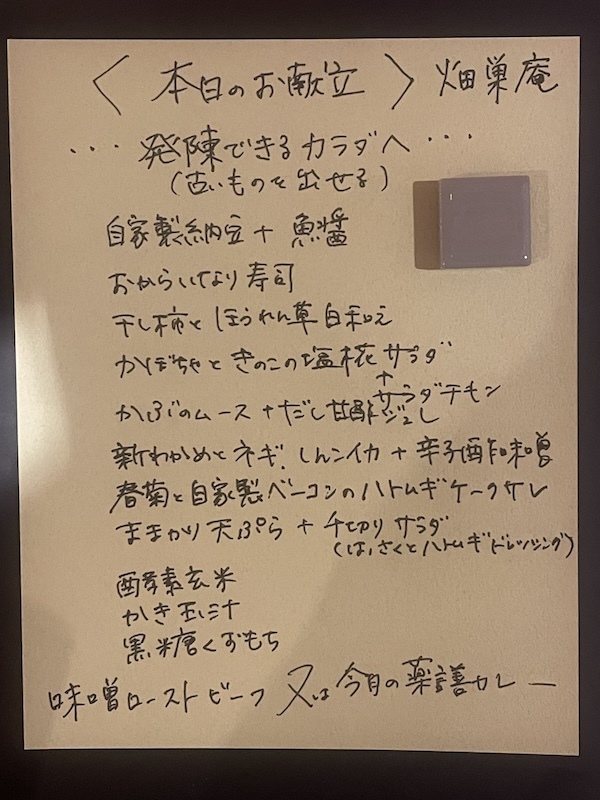 〈 本日のお献立 〉 畑巣庵
・・・発陳できるカラダへ・・・
(古いものを出せる)
自家製納豆 + 魚醤
おからいなり寿司
干し柿とほうれん草白和え
かぼちゃときのこの塩糀サラダ
+ サラダチキン
かぶのムース + だし甘酢ジュレ
新わかめとネギ、しんイカ + 辛子酢味噌
春菊と自家製ベーコンのハトムギケークサレ
ままかり天ぷら + 千切りサラダ
(はっさくとハトムギドレッシング)
酵素玄米
かき玉汁
黒糖くずもち
味噌ローストビーフ 又は 今月の薬膳カレー